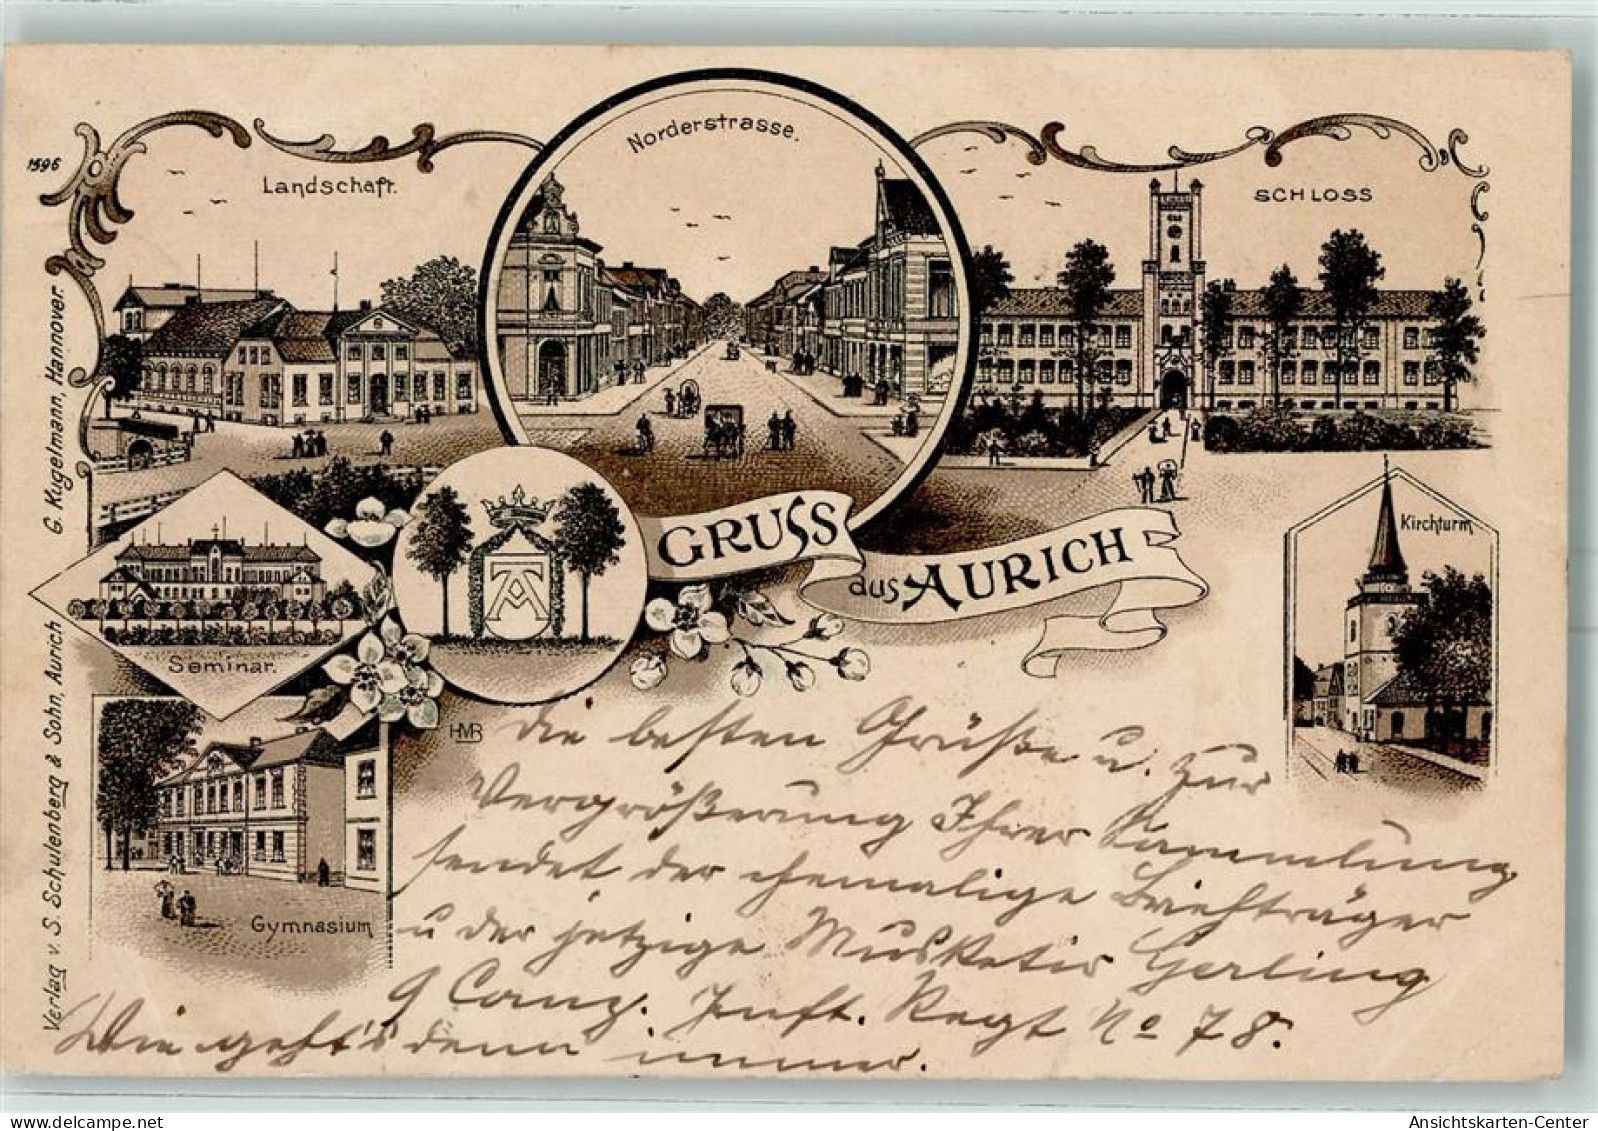 1596
Landschaft.
Norderstrasse.
SCHLOSS
Kirchturm
GRUSS
aus AURICH
Seminar.
HMR
Gymnasium
G. Kugelmann, Hannover.
Verlag v. S. Schulenberg & Sohn, Aurich
die besten Grüße u. zur
Vergrößerung Ihrer Sammlung
sendet der ehemalige Briefträger
u der jetzige Musketir Gerling
9 Comp. Inft. Regt No 78.
Wie geht's denn immer.
Ansichtskarten-Center